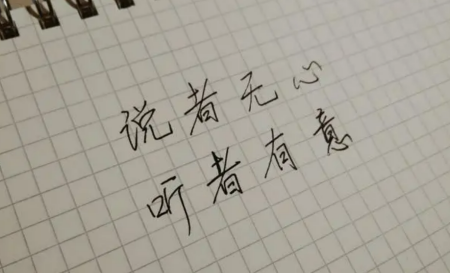 说者无心
听者有意